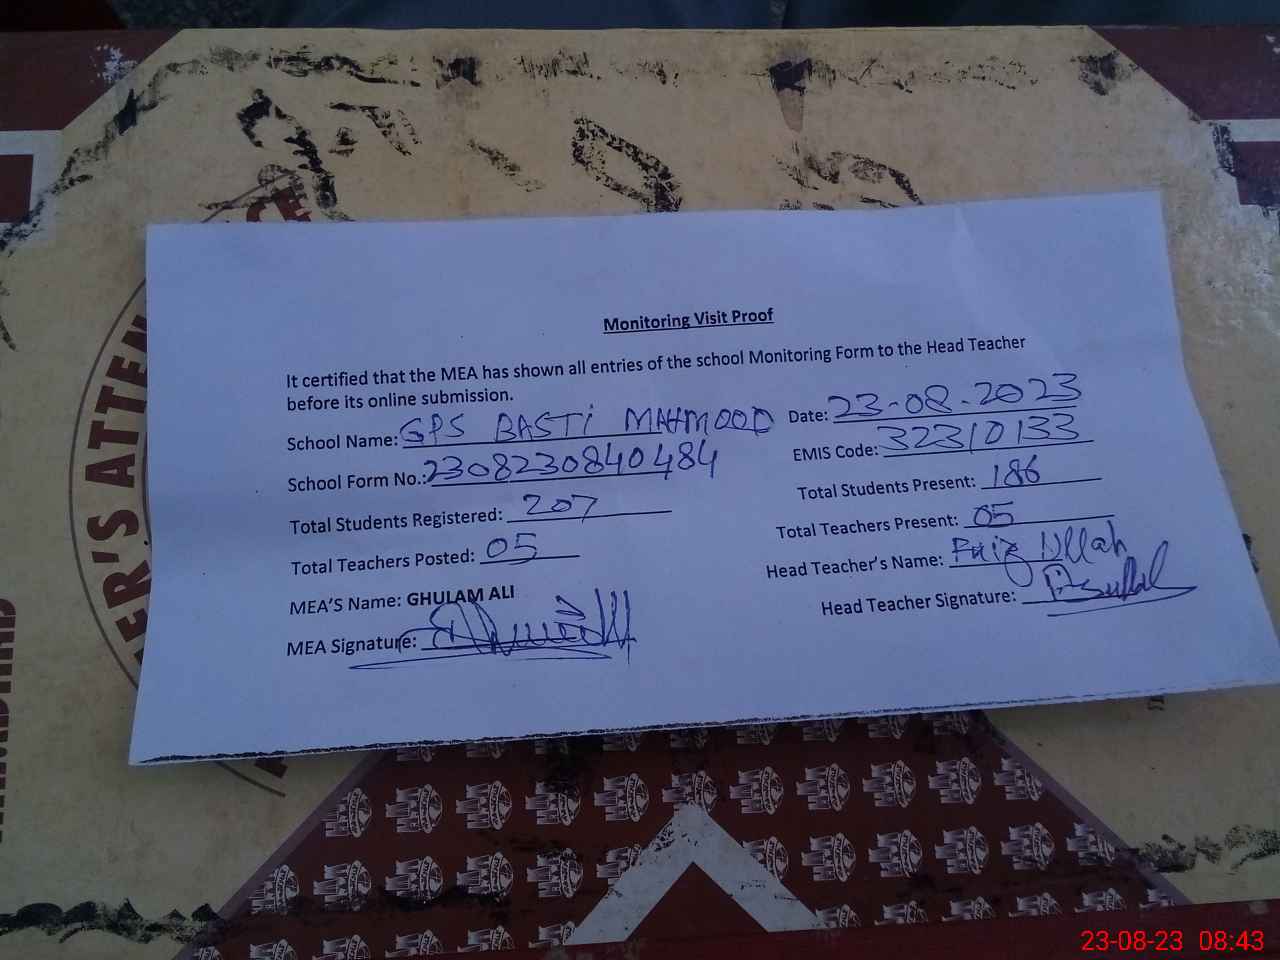 ER'S ATTEN
Monitoring Visit Proof
It certified that the MEA has shown all entries of the school Monitoring Form to the Head Teacher
before its online submission.
School Name: GPS BASTI MAHMOOD Date: 23-08-2023
School Form No.: 2308230840484 EMIS Code: 32310133
Total Students Registered: 207 Total Students Present: 186
Total Teachers Posted: 05 Total Teachers Present: 05
MEA'S Name: GHULAM ALI Head Teacher's Name: Faiz Ullah
MEA Signature: Head Teacher Signature:
23-08-23 08:43